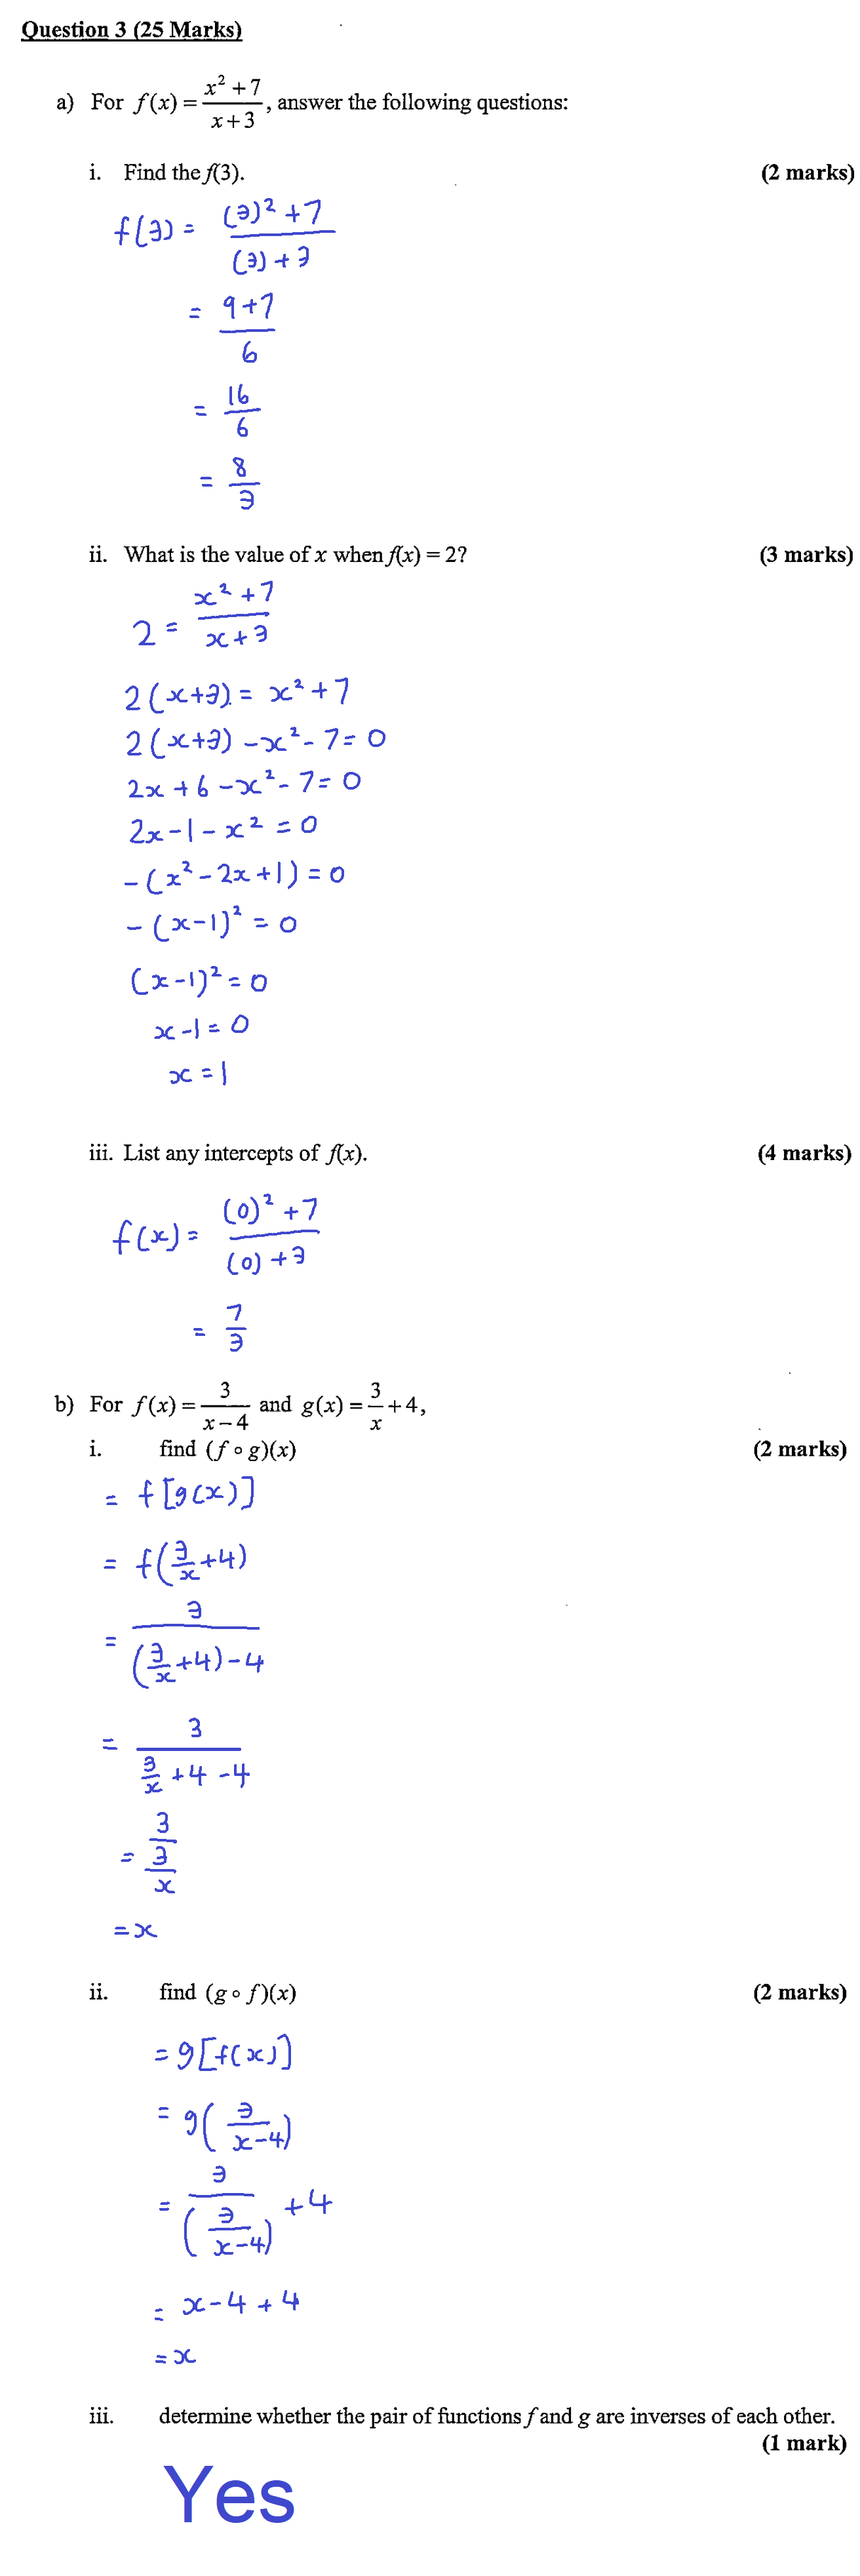 Question 3 (25 Marks)
a) For f(x) = (x² + 7)/(x + 3), answer the following questions:
i. Find the f(3). (2 marks)
f(3) = ((3)² + 7)/((3) + 3)
= (9 + 7)/6
= 16/6
= 8/3
ii. What is the value of x when f(x) = 2? (3 marks)
2 = (x² + 7)/(x + 3)
2(x+3) = x² + 7
2(x+3) - x² - 7 = 0
2x + 6 - x² - 7 = 0
2x - 1 - x² = 0
-(x² - 2x + 1) = 0
-(x - 1)² = 0
(x - 1)² = 0
x - 1 = 0
x = 1
iii. List any intercepts of f(x). (4 marks)
f(x) = ((0)² + 7)/((0) + 3)
= 7/3
b) For f(x) = 3/(x - 4) and g(x) = 3/x + 4,
i. find (f ∘ g)(x) (2 marks)
= f[g(x)]
= f(3/x + 4)
= 3/((3/x + 4) - 4)
= 3/(3/x + 4 - 4)
= 3/(3/x)
= x
ii. find (g ∘ f)(x) (2 marks)
= g[f(x)]
= g(3/(x-4))
= 3/(3/(x-4)) + 4
= x - 4 + 4
= x
iii. determine whether the pair of functions f and g are inverses of each other.
(1 mark)
Yes